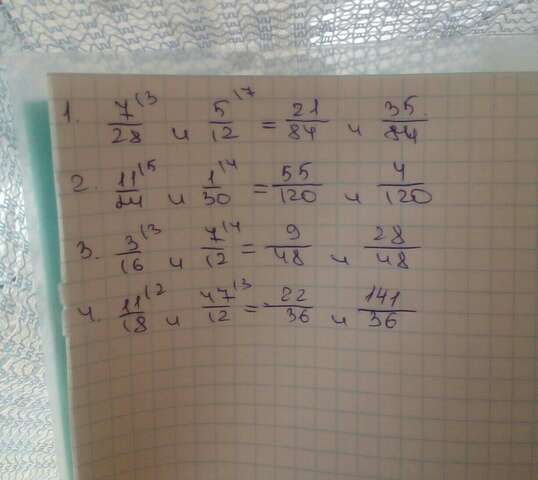 1. 7/28 (3 и 5/12 (7 = 21/84 и 35/84
2. 11/24 (5 и 1/30 (4 = 55/120 и 4/120
3. 3/16 (3 и 7/12 (4 = 9/48 и 28/48
4. 11/18 (2 и 47/12 (3 = 22/36 и 141/36